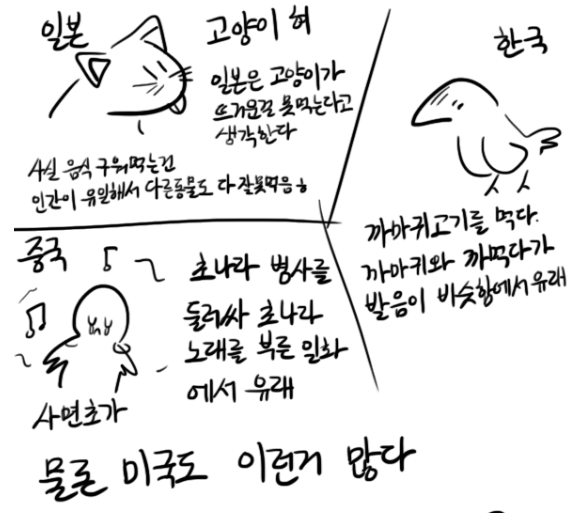 일본
고양이 혀
일본은 고양이가
뜨거운걸 못먹는다고
생각한다
사실 음식 구워먹는건
인간이 유일해서 다른동물도 다 잘못먹음ㅎ
한국
까마귀고기를 먹다.
까마귀와 까먹다가
발음이 비슷함에서 유래
중국
초나라 병사를
둘러싸 초나라
노래를 부른 일화
에서 유래
사면초가
물론 미국도 이런거 많다